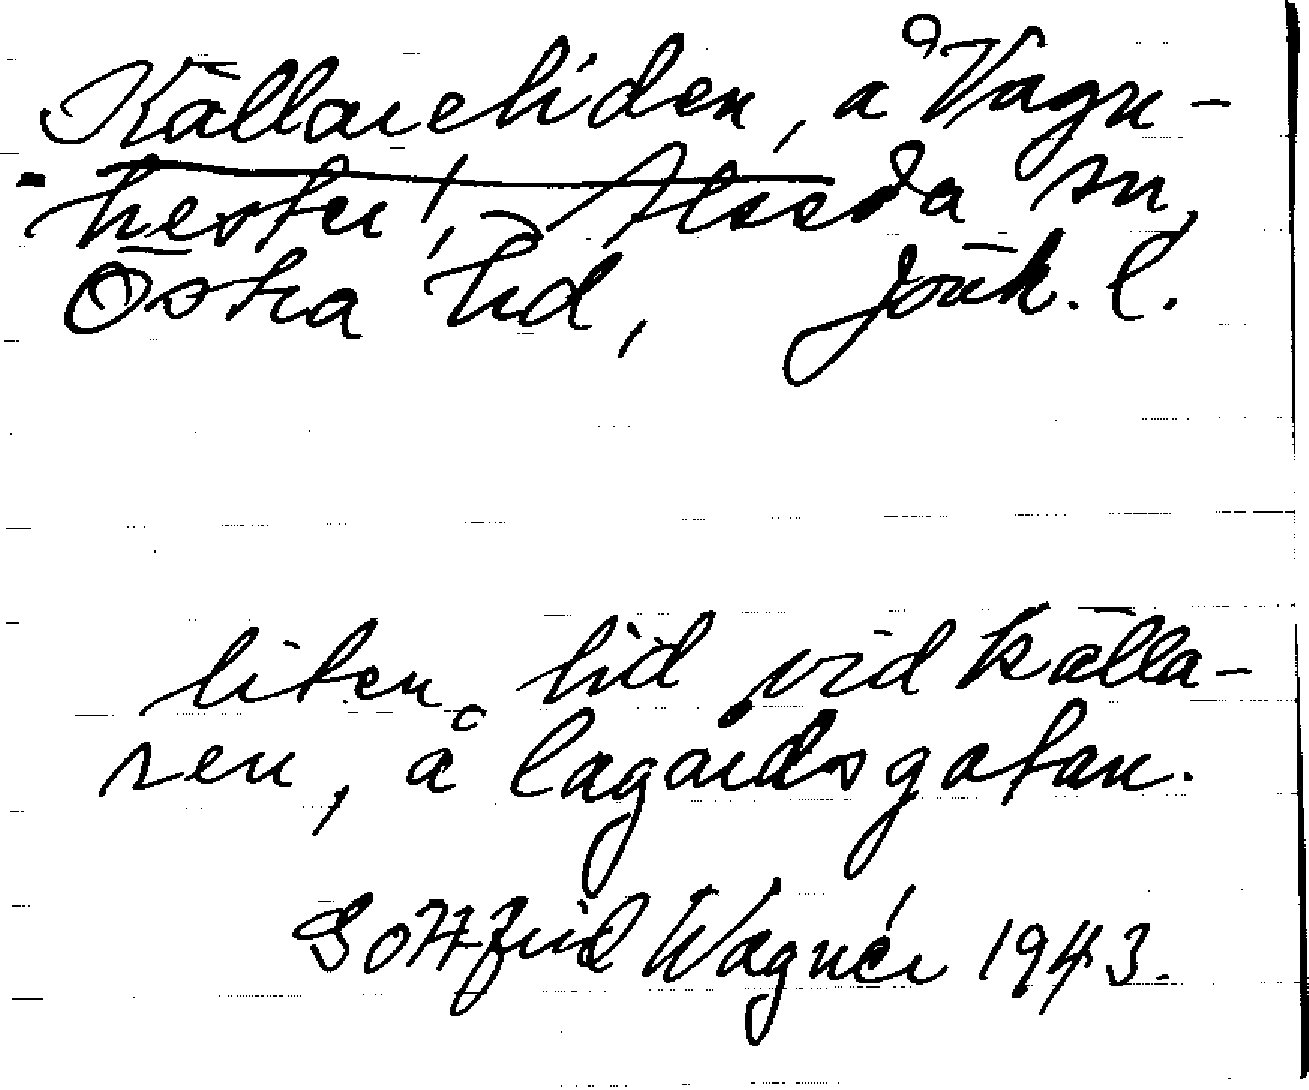 Källareliden, å Vagn-
hester, Alseda sn,
Östra hd, Jönk. l.
liten lid vid källa-
ren, å lagårdsgatan.
Gottfrid Wagnér 1943.